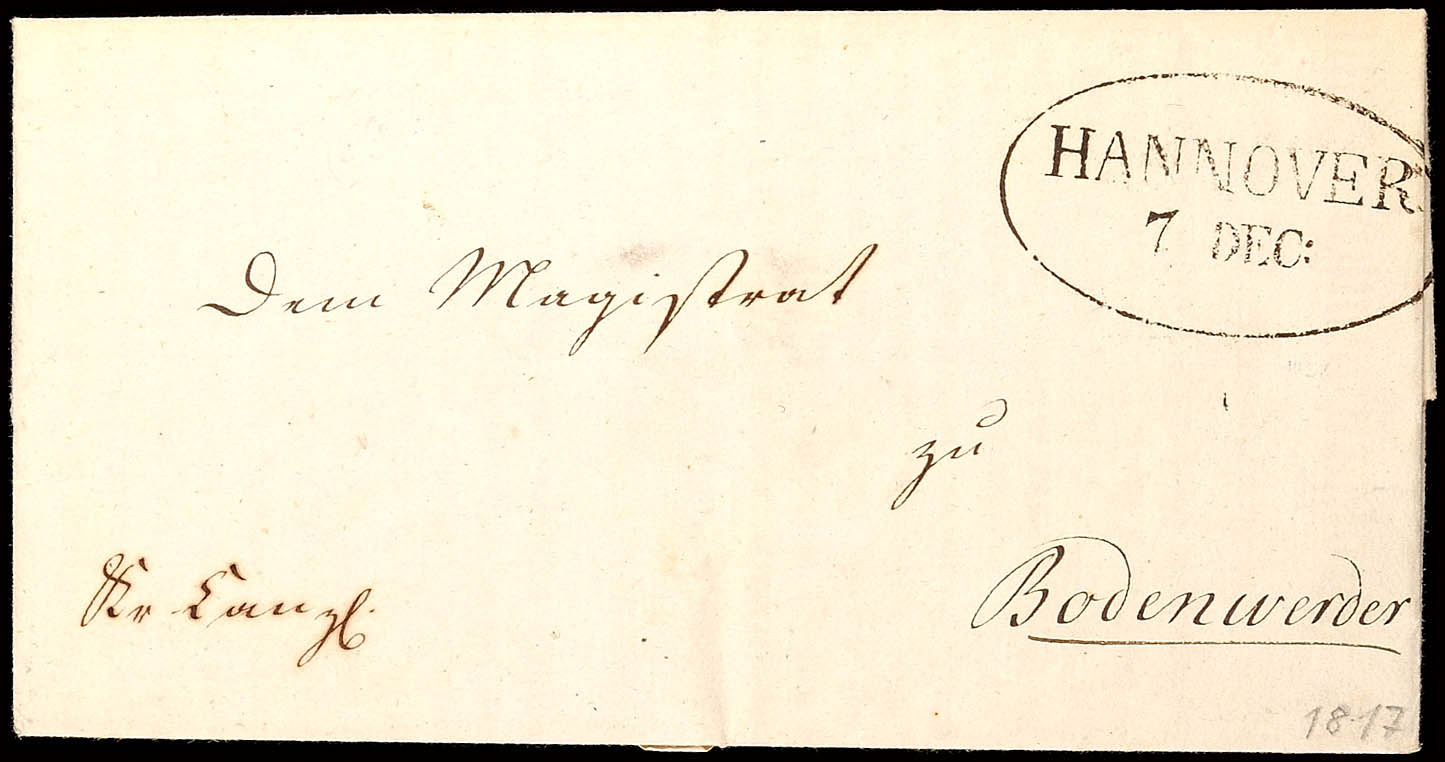 HANNOVER
7 DEC:
Dem Magistrat
zu
Bodenwerder
Canzl.
1817